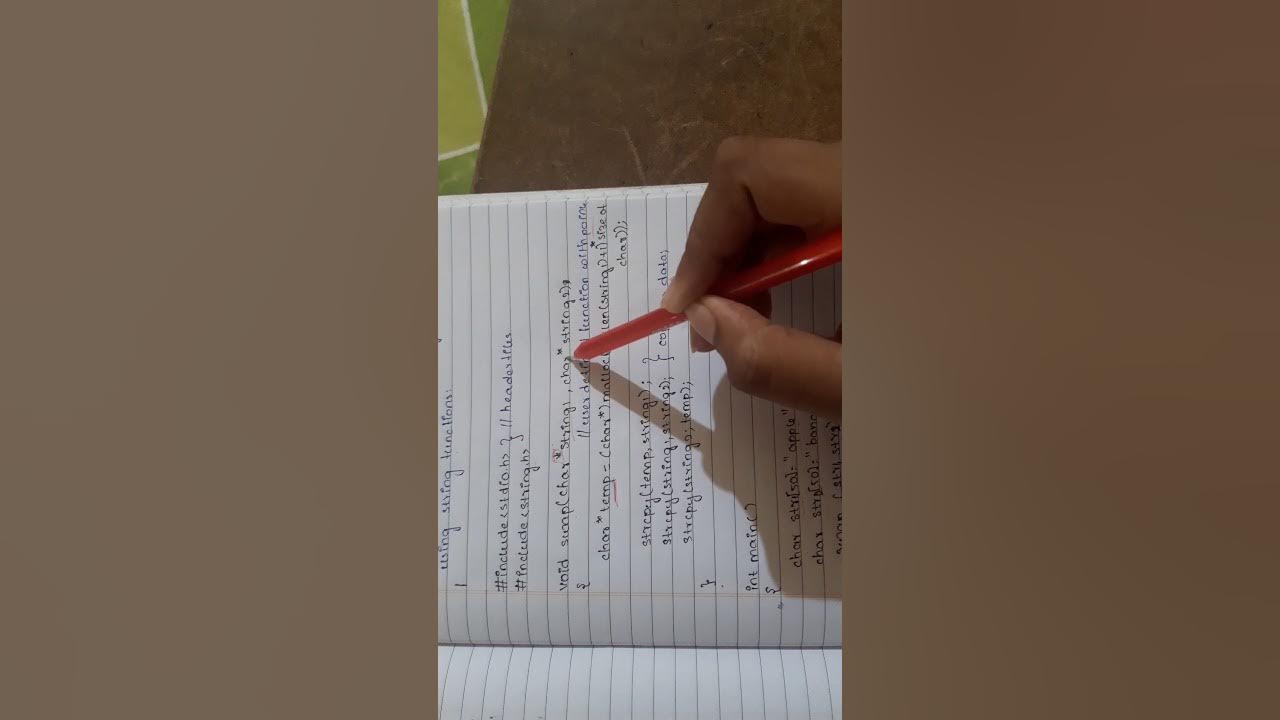 using string functions:
#include<stdio.h> } // headerfiles
#include<string.h> }
void swap(char* string1, char* string2)
{ // user defin function with
char* temp = (char*)malloc len(string1)+1)*size of
char));
strcpy(temp, string1); }
strcpy(string1, string2); } data;
strcpy(string2, temp);
}
int main()
{
char str1[50]="apple"
char str2[50]="bana
swap (str1, str2